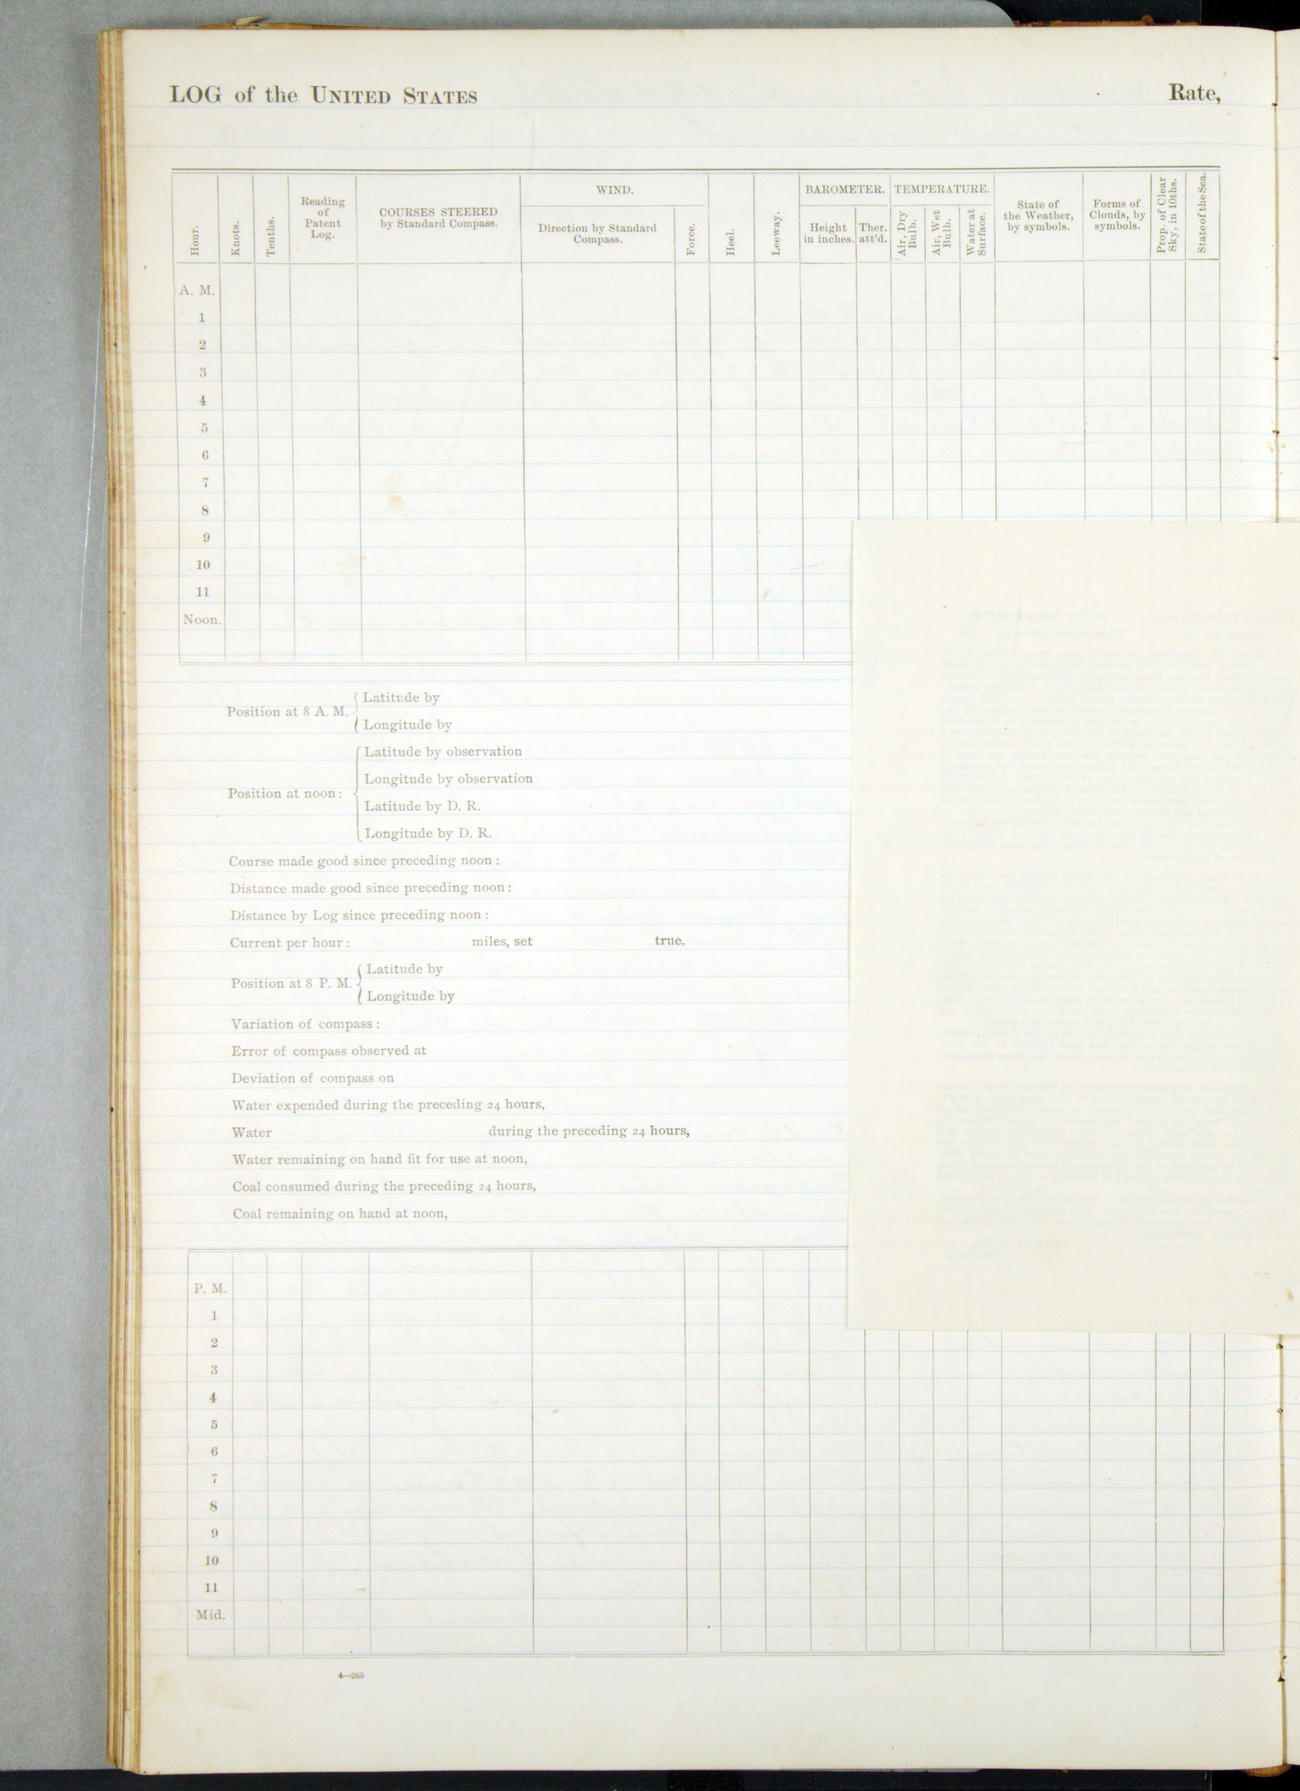 LOG of the UNITED STATES Rate,
WIND. BAROMETER. TEMPERATURE.
Hour. Knots. Tenths. Reading of Patent Log. COURSES STEERED by Standard Compass. Direction by Standard Compass. Force. Heel. Leeway. Height in inches. Ther. att'd. Air, Dry Bulb. Air, Wet Bulb. Water at Surface. State of the Weather, by symbols. Forms of Clouds, by symbols. Prop. of Clear Sky, in 10ths. State of the Sea.
A. M.
1
2
3
4
5
6
7
8
9
10
11
Noon.
Position at 8 A. M. Latitude by
Longitude by
Position at noon: Latitude by observation
Longitude by observation
Latitude by D. R.
Longitude by D. R.
Course made good since preceding noon:
Distance made good since preceding noon:
Distance by Log since preceding noon:
Current per hour: miles, set true.
Position at 8 P. M. Latitude by
Longitude by
Variation of compass:
Error of compass observed at
Deviation of compass on
Water expended during the preceding 24 hours,
Water during the preceding 24 hours,
Water remaining on hand fit for use at noon,
Coal consumed during the preceding 24 hours,
Coal remaining on hand at noon,
P. M.
1
2
3
4
5
6
7
8
9
10
11
Mid.
4—265